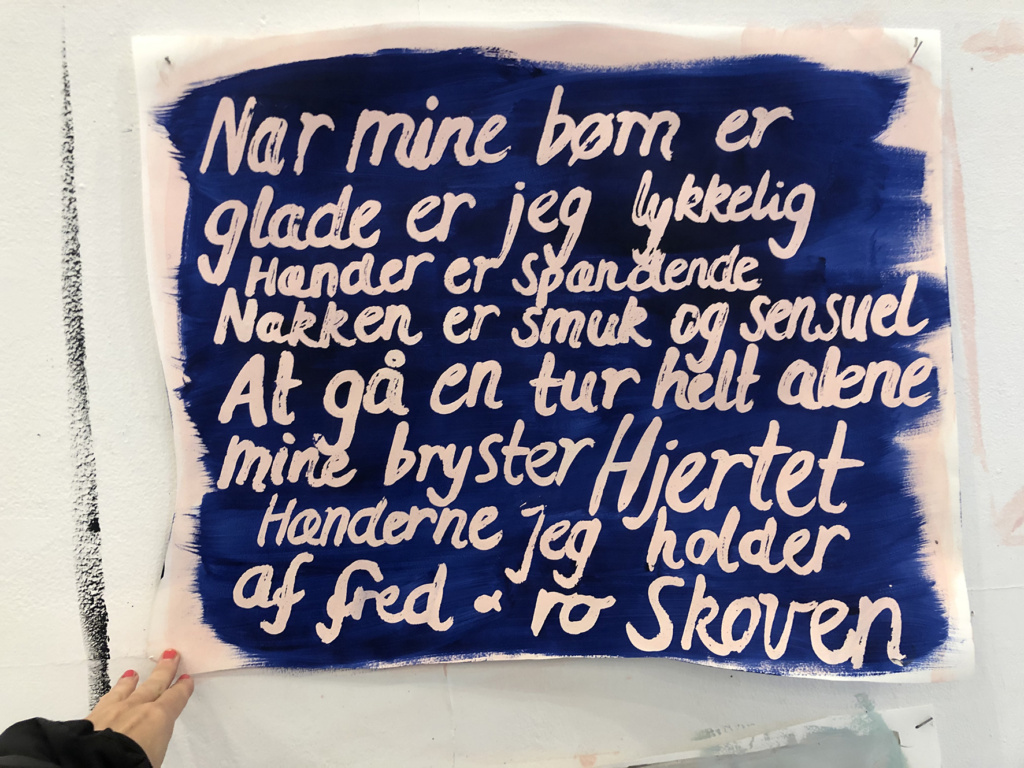 Nar mine børn er
glade er jeg lykkelig
Hænder er spændende
Nakken er smuk og sensuel
At gå en tur helt alene
mine bryster Hjertet
Hænderne jeg holder
af fred & ro Skoven